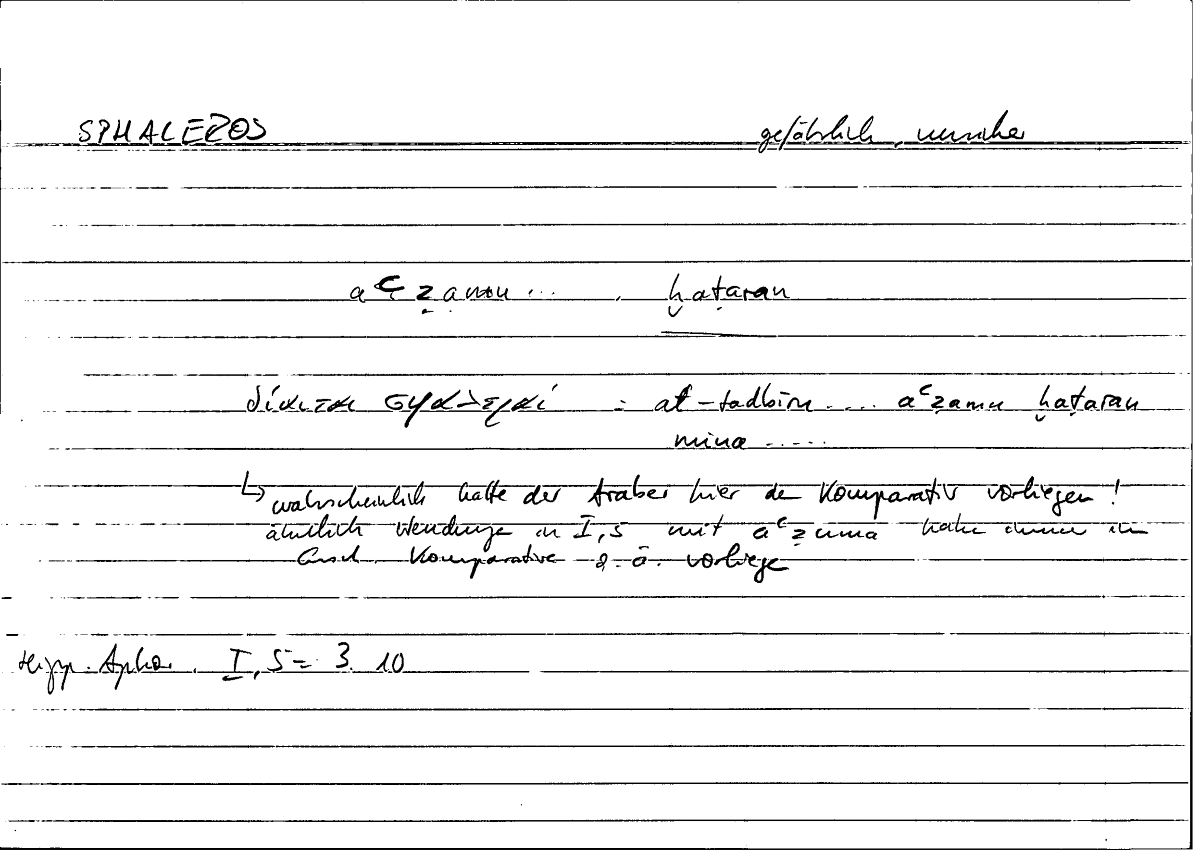 SPHALEROS gefährlich, unsicher
aʿẓamu ... . ḫaṭaran
δίαιται σφαλεραί = at-tadbīru .... aʿẓamu ḫaṭaran
mina .....
↳ wahrscheinlich hatte der Araber hier den Komparativ vorliegen!
ähnlich Wendungen in I,5 mit aʿẓuma immer im
Griech. Komparative o.ä. vorliegen
Hipp. Aphor. I,5 = 3. 10